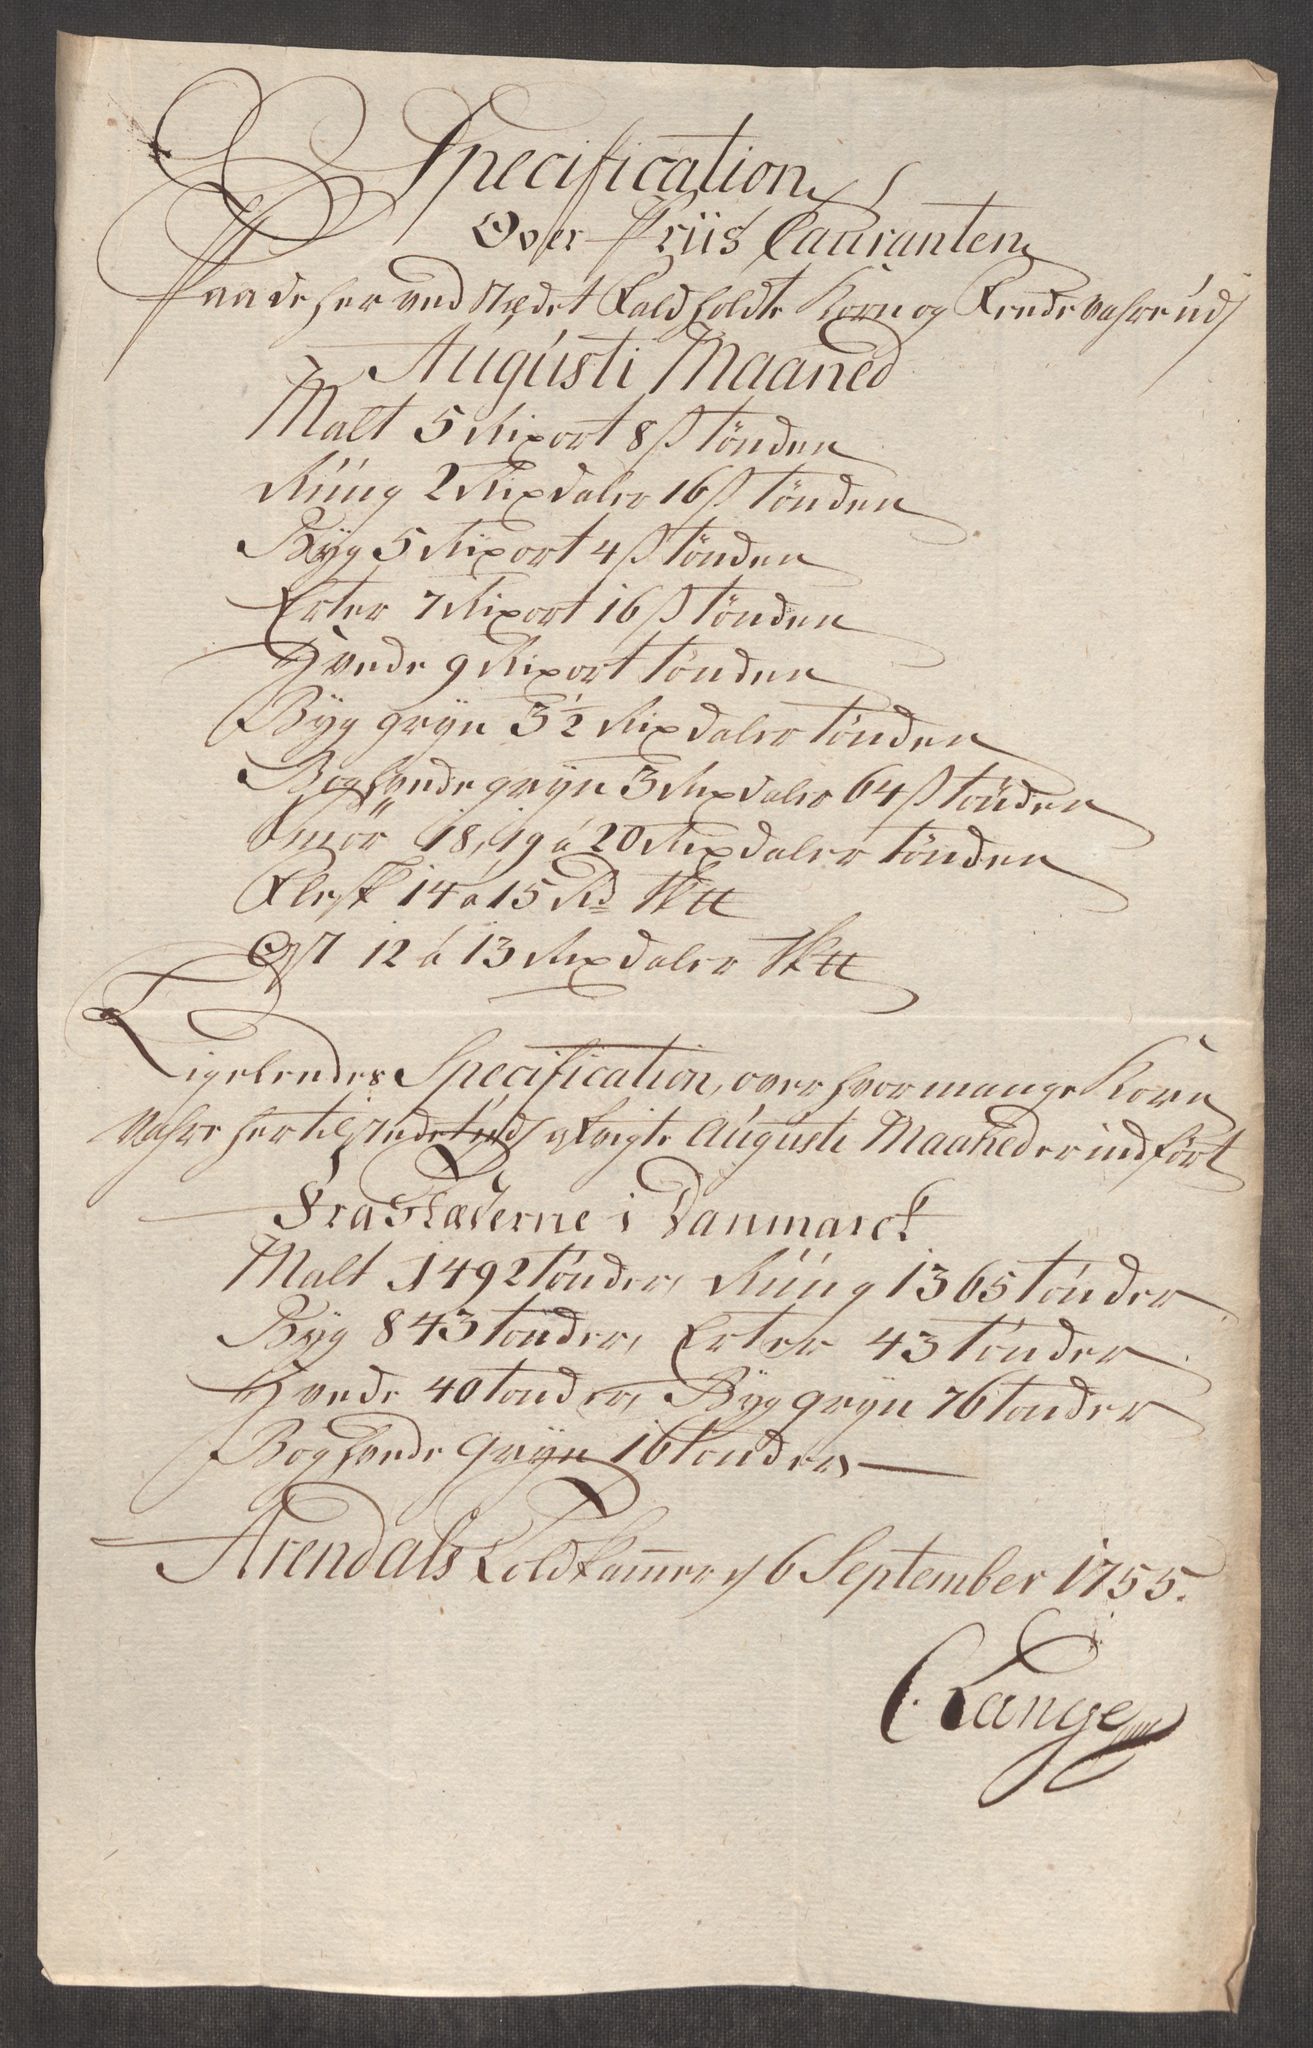 Specification
Over Priis Couranten
Paa de her ved Stædet Faldholdte Korn og Fede vahre udj
Augústi Maaned
Malt 5 Rixort 8 ß tönden
Rúúg 2 Rixdaler 16 ß tönden
Byg 5 Rixort 4 ß tönden
Erter 7 Rixort 16 ß tönden
Hvede 9 Rixort tönden
Byg gryn 3½ Rixdaler tönden
Boghvede gryn 3 Rixdaler 64 ß tönden
Smör 18, 19 á 20 Rixdaler tönden
Flesk 14 a 15 Rd Sk℔
Ost 12 á 13 Rixdaler Sk℔
Ligeledes Specification, over hvor mange Korn
vahre her til Stedet udj afvigte Augústi Maaned er indfört
Fra Stæderne i Danmarck
Malt 1492 tönder, Rúúg 1365 tönder
Byg 843 tönder, Erter 43 tönder
Hvede 40 tönder, Byg gryn 76 tönder
Boghvede gryn 16 tönder
Arendals Toldkammer d 6 September 1755.
C. Lange